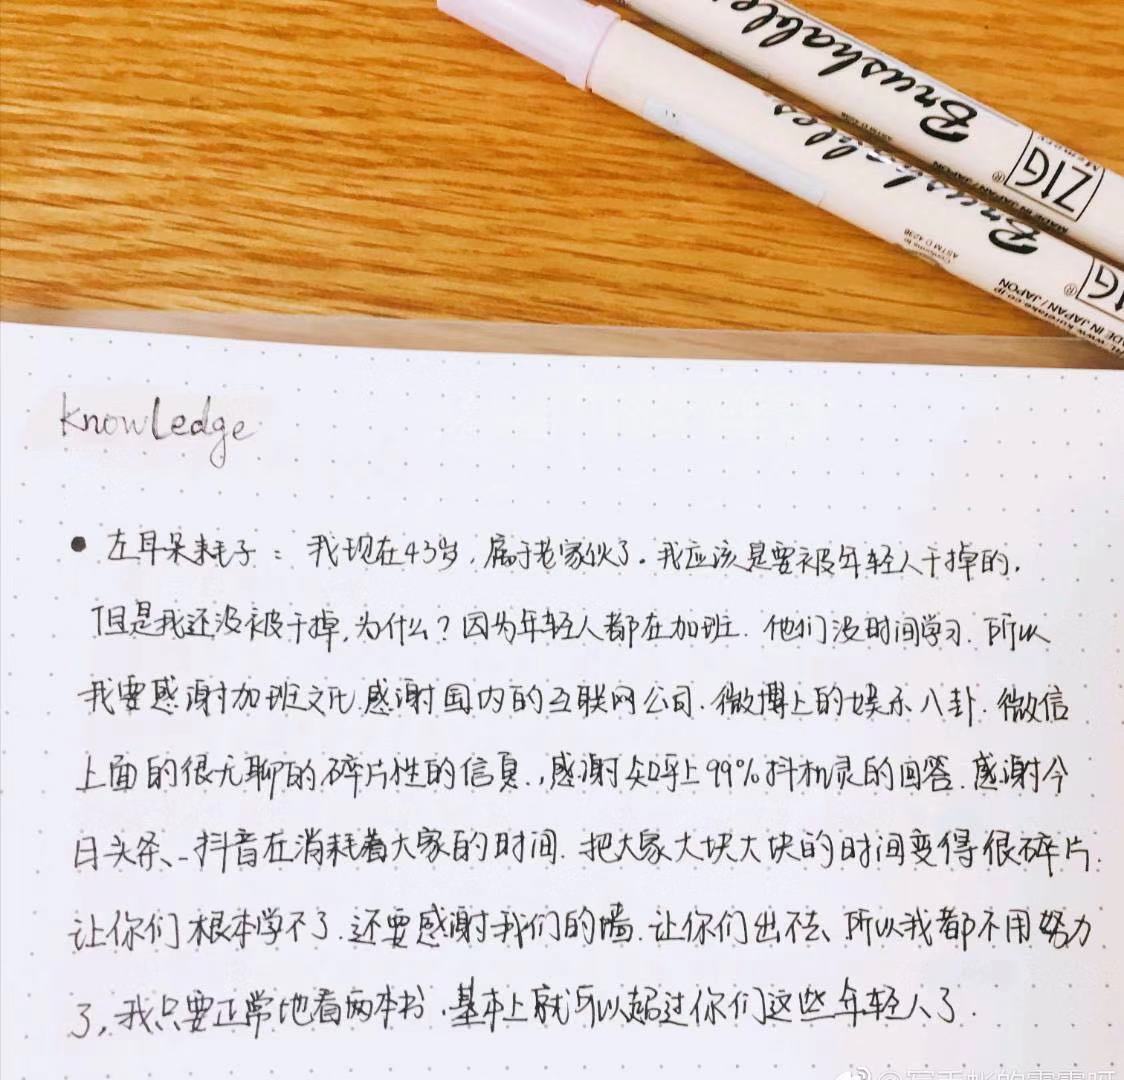 Brushable
ZIG
Memory
MADE IN JAPAN / JAPON
ASTM D 4236
Brushables
Conforms to
ASTM D 4236
www.kuretake.co.jp
MADE IN JAPAN / JAPON
knowledge
• 左耳呆耗子：我现在43岁，属于老家伙了.我应该是要被年轻人干掉的.
但是我还没被干掉,为什么？因为年轻人都在加班.他们没时间学习.所以
我要感谢加班文化.感谢国内的互联网公司.微博上的娱乐八卦.微信
上面的很无聊的碎片性的信息.,感谢知乎上99%抖机灵的回答.感谢今
日头条、抖音在消耗着大家的时间.把大家大块大块的时间变得很碎片.
让你们根本学不了.还要感谢我们的墙.让你们出不去、所以我都不用努力
了,我只要正常地看两本书.基本上就可以超过你们这些年轻人了.